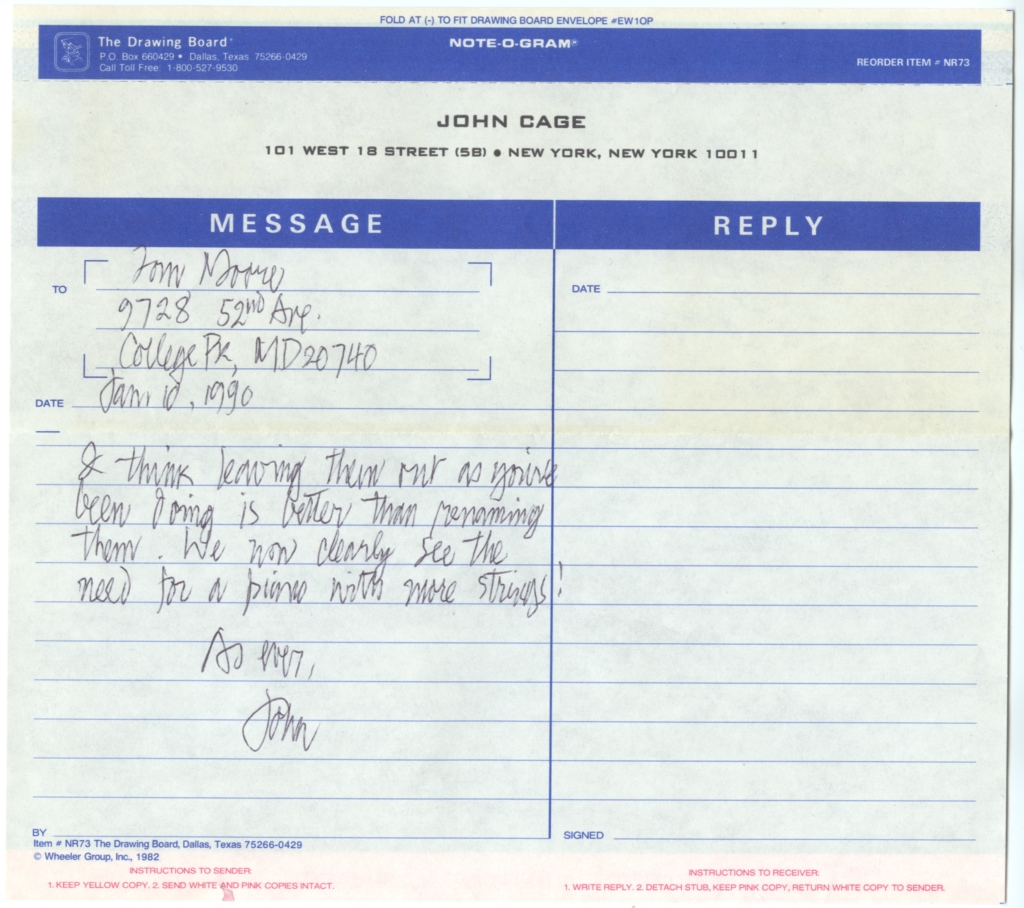 FOLD AT (-) TO FIT DRAWING BOARD ENVELOPE #EW10P
The Drawing Board®
P.O. Box 660429 • Dallas, Texas 75266-0429
Call Toll Free: 1-800-527-9530
NOTE-O-GRAM®
REORDER ITEM # NR73
JOHN CAGE
101 WEST 18 STREET (5B) ● NEW YORK, NEW YORK 10011
MESSAGE
TO
Tom Moore
9728 52nd Ave.
College Pk, MD 20740
DATE
Jan. 10, 1990
I think leaving them out as you've
been doing is better than renaming
them. We now clearly see the
need for a piano with more strings!
As ever,
John
BY
Item # NR73 The Drawing Board, Dallas, Texas 75266-0429
© Wheeler Group, Inc., 1982
INSTRUCTIONS TO SENDER:
1. KEEP YELLOW COPY. 2. SEND WHITE AND PINK COPIES INTACT.
REPLY
DATE
SIGNED
INSTRUCTIONS TO RECEIVER:
1. WRITE REPLY. 2. DETACH STUB, KEEP PINK COPY, RETURN WHITE COPY TO SENDER.